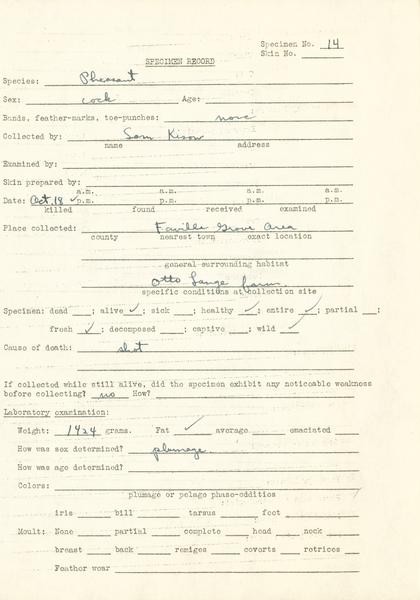 Specimen No. 14
Skin No.
SPECIMEN RECORD
Species: Pheasant
Sex: cock Age:
Bands, feather-marks, toe-punches: none
Collected by: Sam Kison
name address
Examined by:
Skin prepared by:
a.m. a.m. a.m. a.m.
Date: Oct. 18 ✓ p.m. p.m. p.m. p.m.
killed found received examined
Place collected: Faville Grove Area
county nearest town exact location
general surrounding habitat
Otto Lange farm
specific conditions at collection site
Specimen: dead ___; alive ✓; sick ___; healthy ✓; entire ✓; partial ___;
fresh ✓; decomposed ___; captive ___; wild ✓
Cause of death: shot
If collected while still alive, did the specimen exhibit any noticeable weakness
before collecting? no How?
Laboratory examination:
Weight: 1424 grams. Fat ✓ average emaciated
How was sex determined? plumage
How was age determined?
Colors:
plumage or pelage phase-oddities
iris bill tarsus foot
Moult: None partial complete head neck
breast back remiges coverts retrices
Feather wear